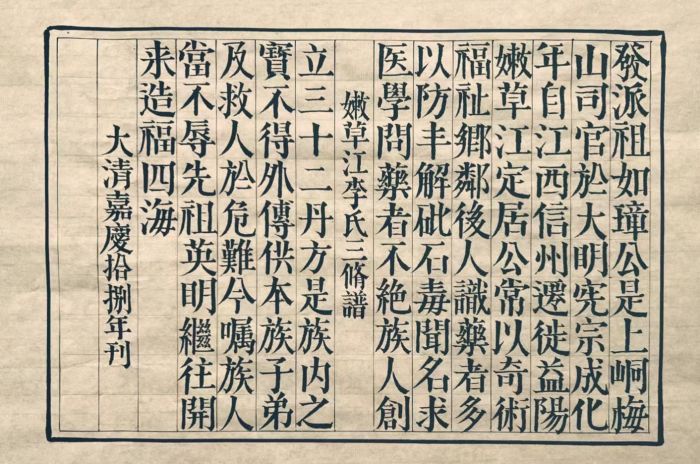 發派祖如璋公是上峒梅
山司官於大明宪宗成化
年自江西信州遷徙益陽
嫩草江定居公常以奇術
福祉鄉鄰後人識藥者多
以防丰解砒石毒聞名求
医學問藥者不絶族人創
嫩草江李氏三脩譜
立三十二丹方是族内之
寳不得外傳供本族子弟
及救人於危難今嘱族人
當不辱先祖英明繼往開
来造福四海
大清嘉慶拾捌年刊